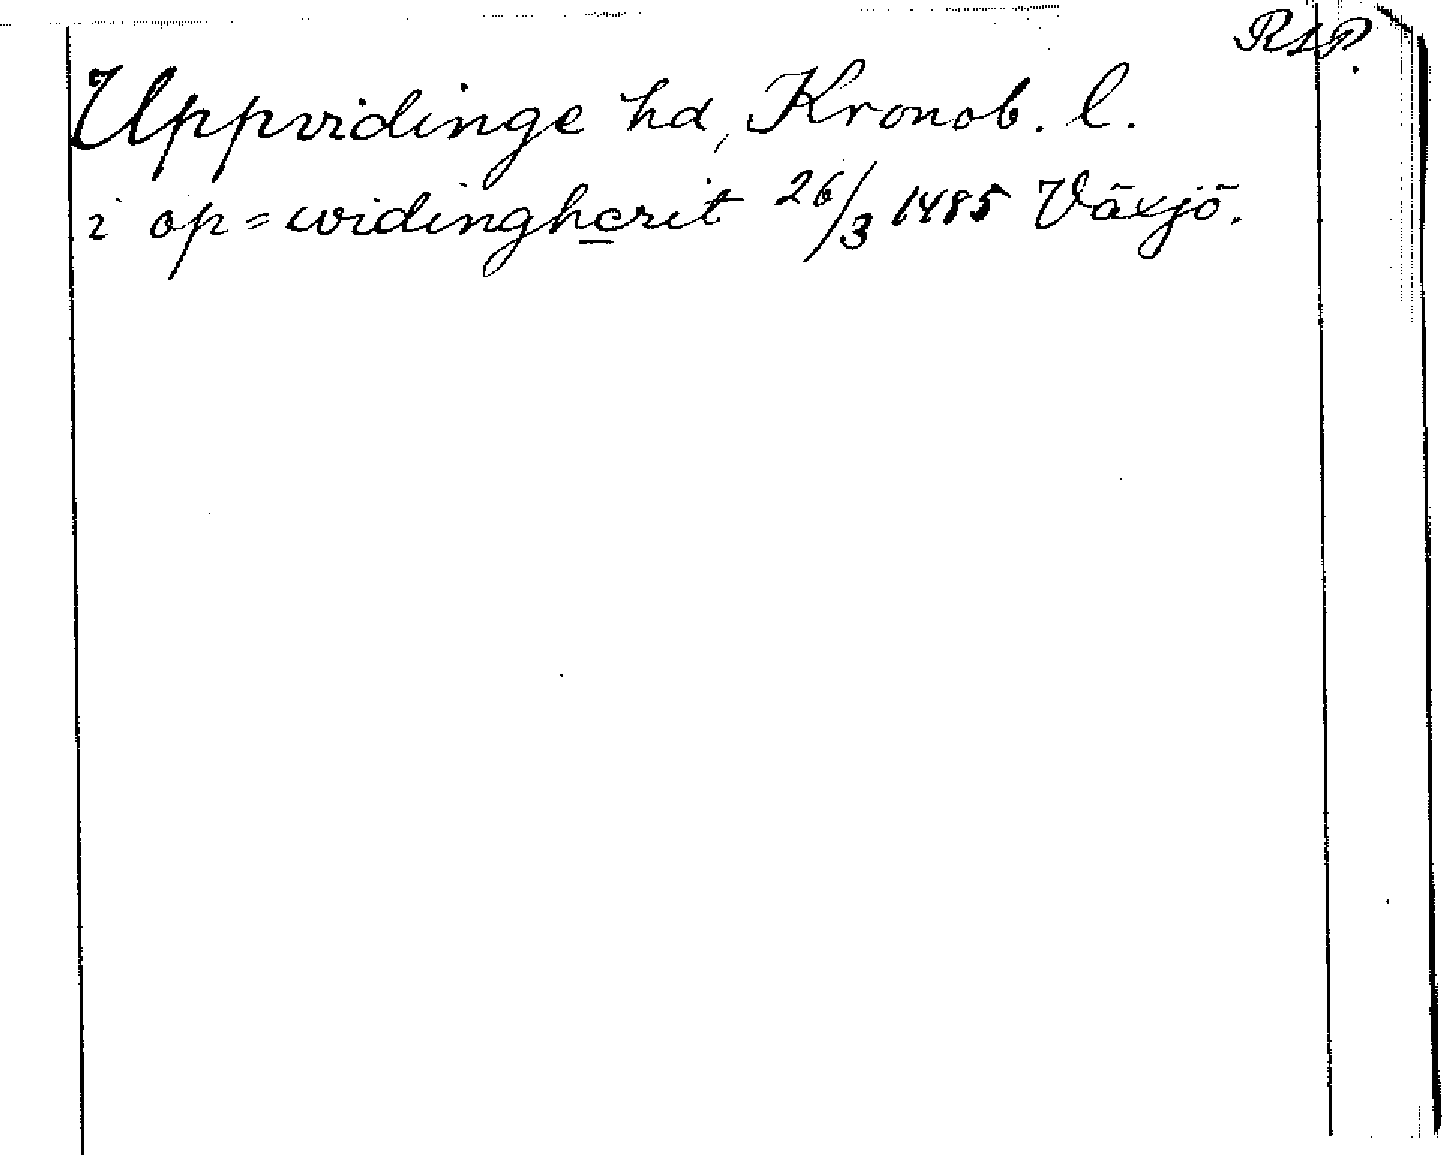 RAP.
Uppvidinge hd, Kronob. l.
i op=widingherit 26/3 1485 Växjö.